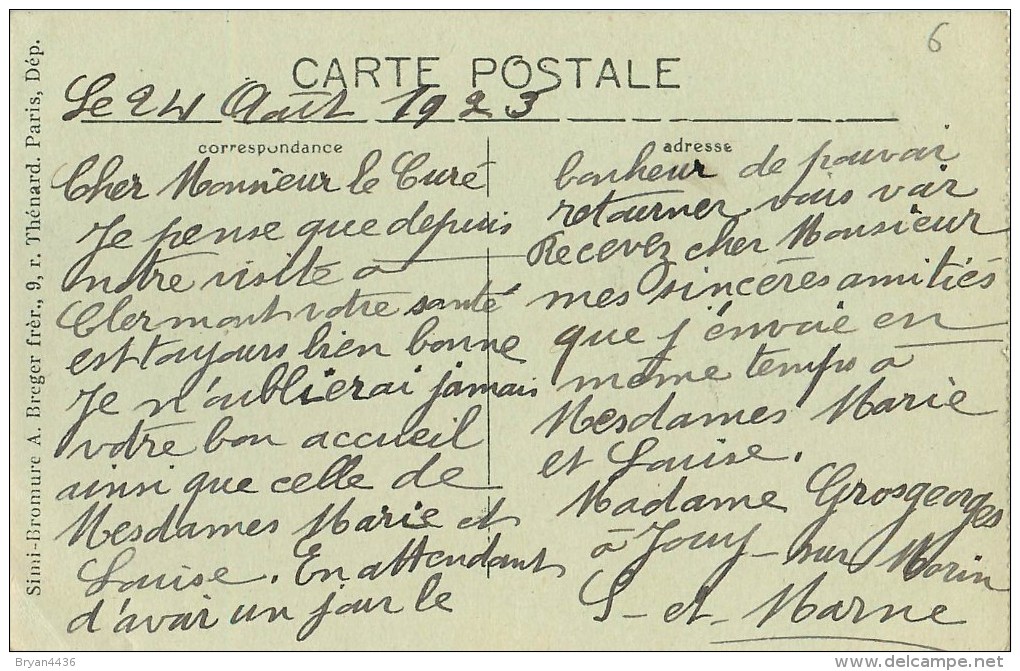 6
CARTE POSTALE
Le 24 Août 1923
correspondance
Cher Monsieur le Curé
Je pense que depuis
notre visite à
Clermont votre santé
est toujours bien bonne
Je n'oublierai jamais
votre bon accueil
ainsi que celle de
Mesdames Marie et
Louise. En attendant
d'avoir un jour le
adresse
bonheur de pouvoir
retourner vous voir
Recevez cher Monsieur
mes sincères amitiés
que j'envoie en
même temps à
Mesdames Marie
et Louise.
Madame Grosgeorges
à Jouy-sur Morin
S-et-Marne
Simi-Bromure A. Breger frèr., 9, r. Thénard. Paris, Dép.
Bryan4436
delcampe.net